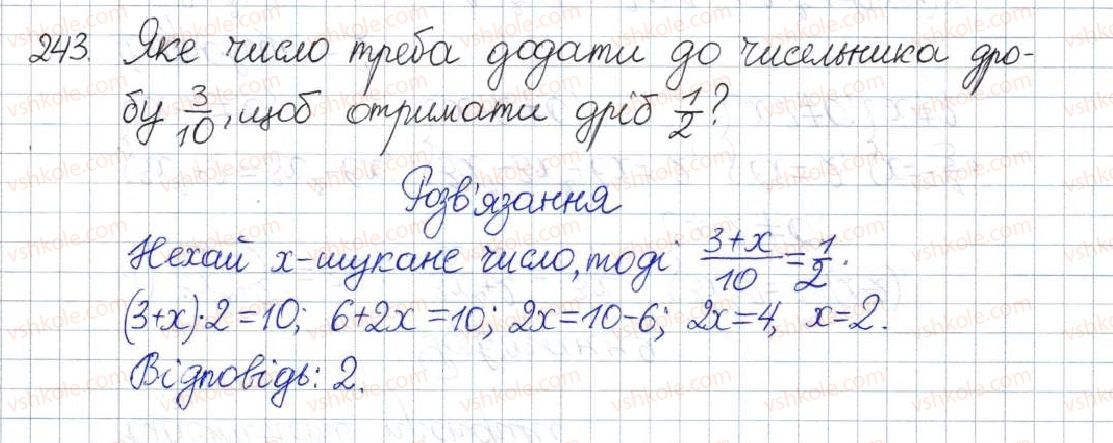 243. Яке число треба додати до чисельника дро-
бу 3/10, щоб отримати дріб 1/2?
Розв'язання
Нехай x - шукане число, тоді (3+x)/10 = 1/2.
(3+x)·2=10; 6+2x=10; 2x=10-6; 2x=4, x=2.
Відповідь: 2.